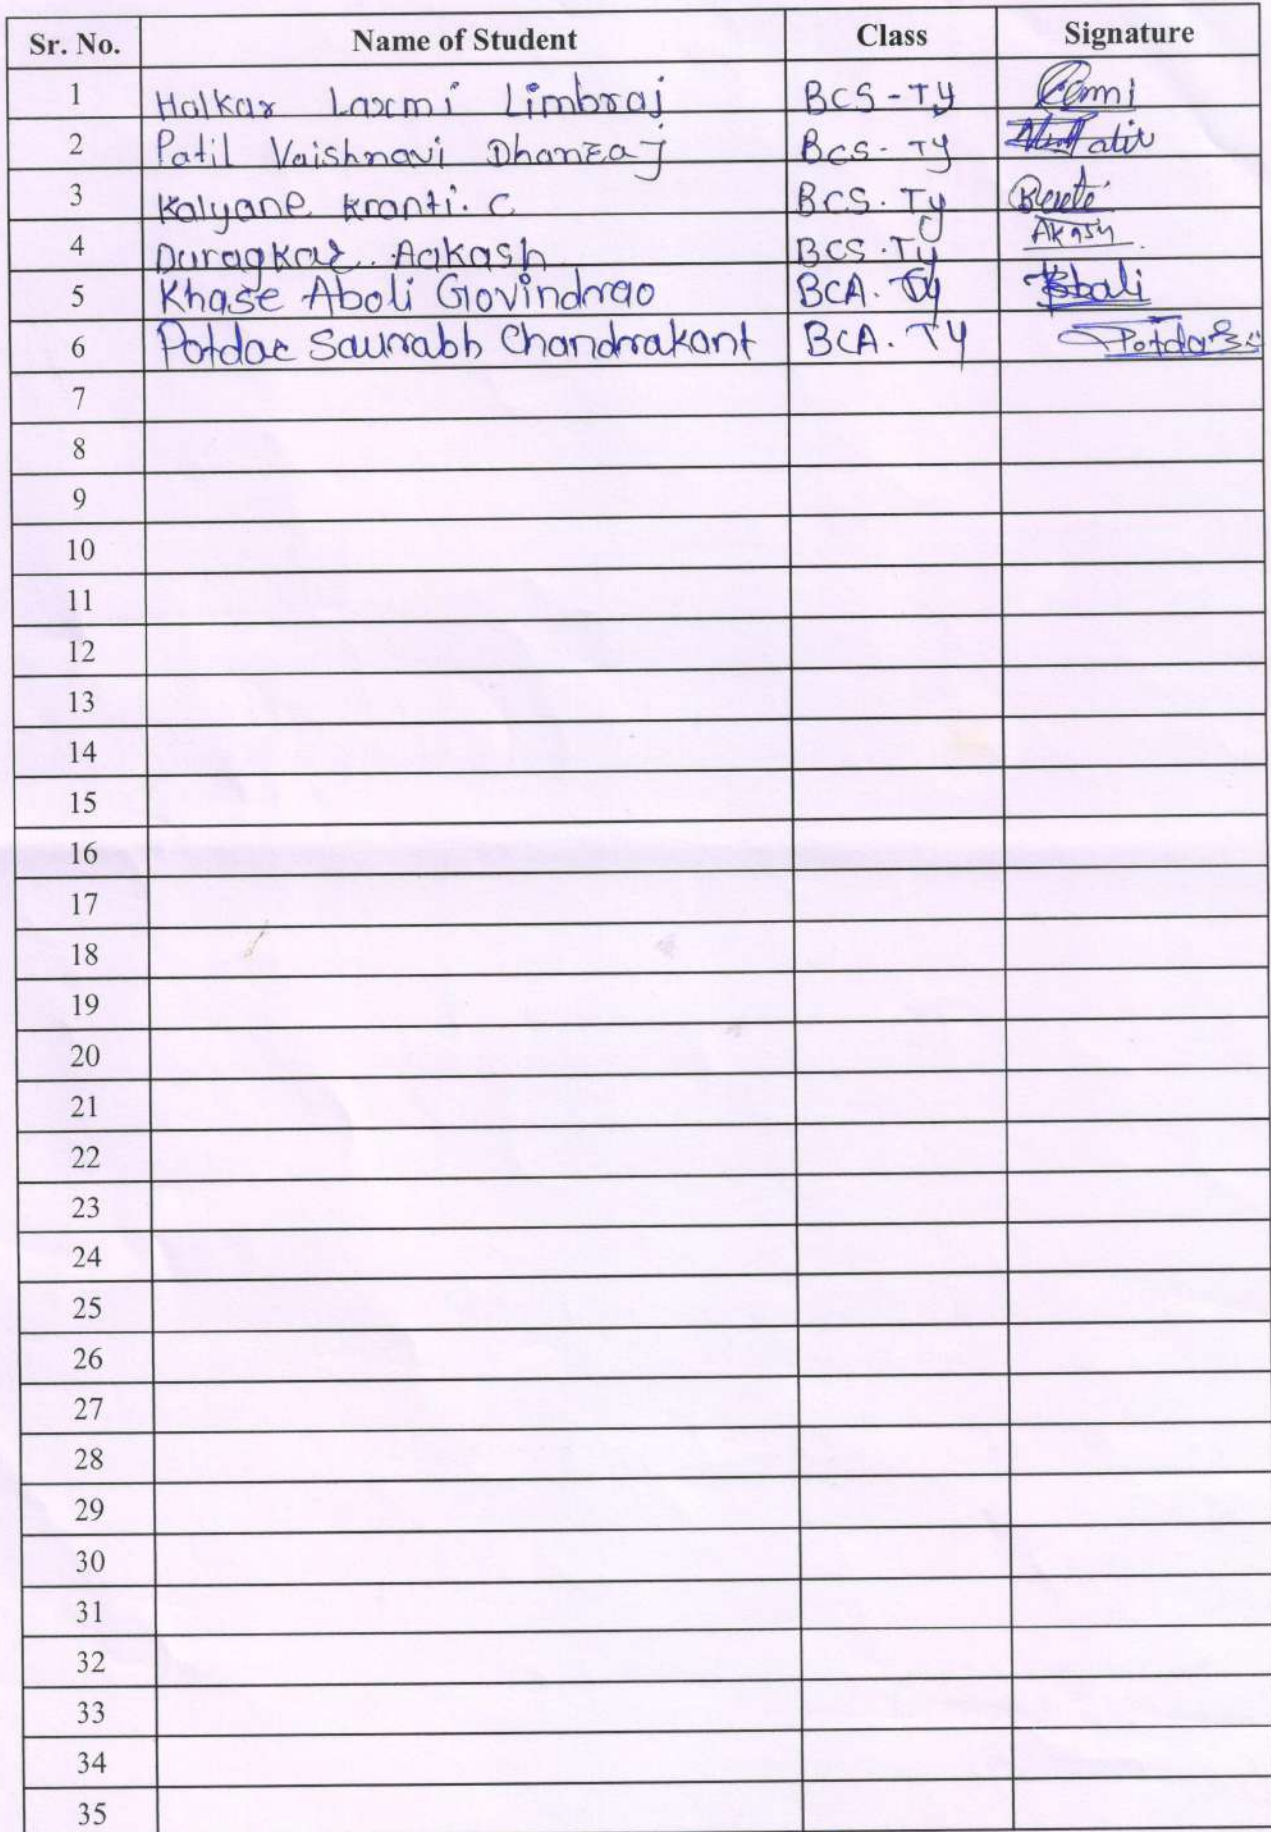 Sr. No. Name of Student Class Signature
1 Halkar Laxmi Limbraj BCS-TY
2 Patil Vaishnavi Dhanraj BCS-TY
3 Kalyane Kranti. C BCS.Ty
4 Duragkar Aakash BCS.Ty Akash
5 Khase Aboli Govindrao BCA.Ty
6 Potdar Saurabh Chandrakant BCA.TY Potdar
7
8
9
10
11
12
13
14
15
16
17
18
19
20
21
22
23
24
25
26
27
28
29
30
31
32
33
34
35